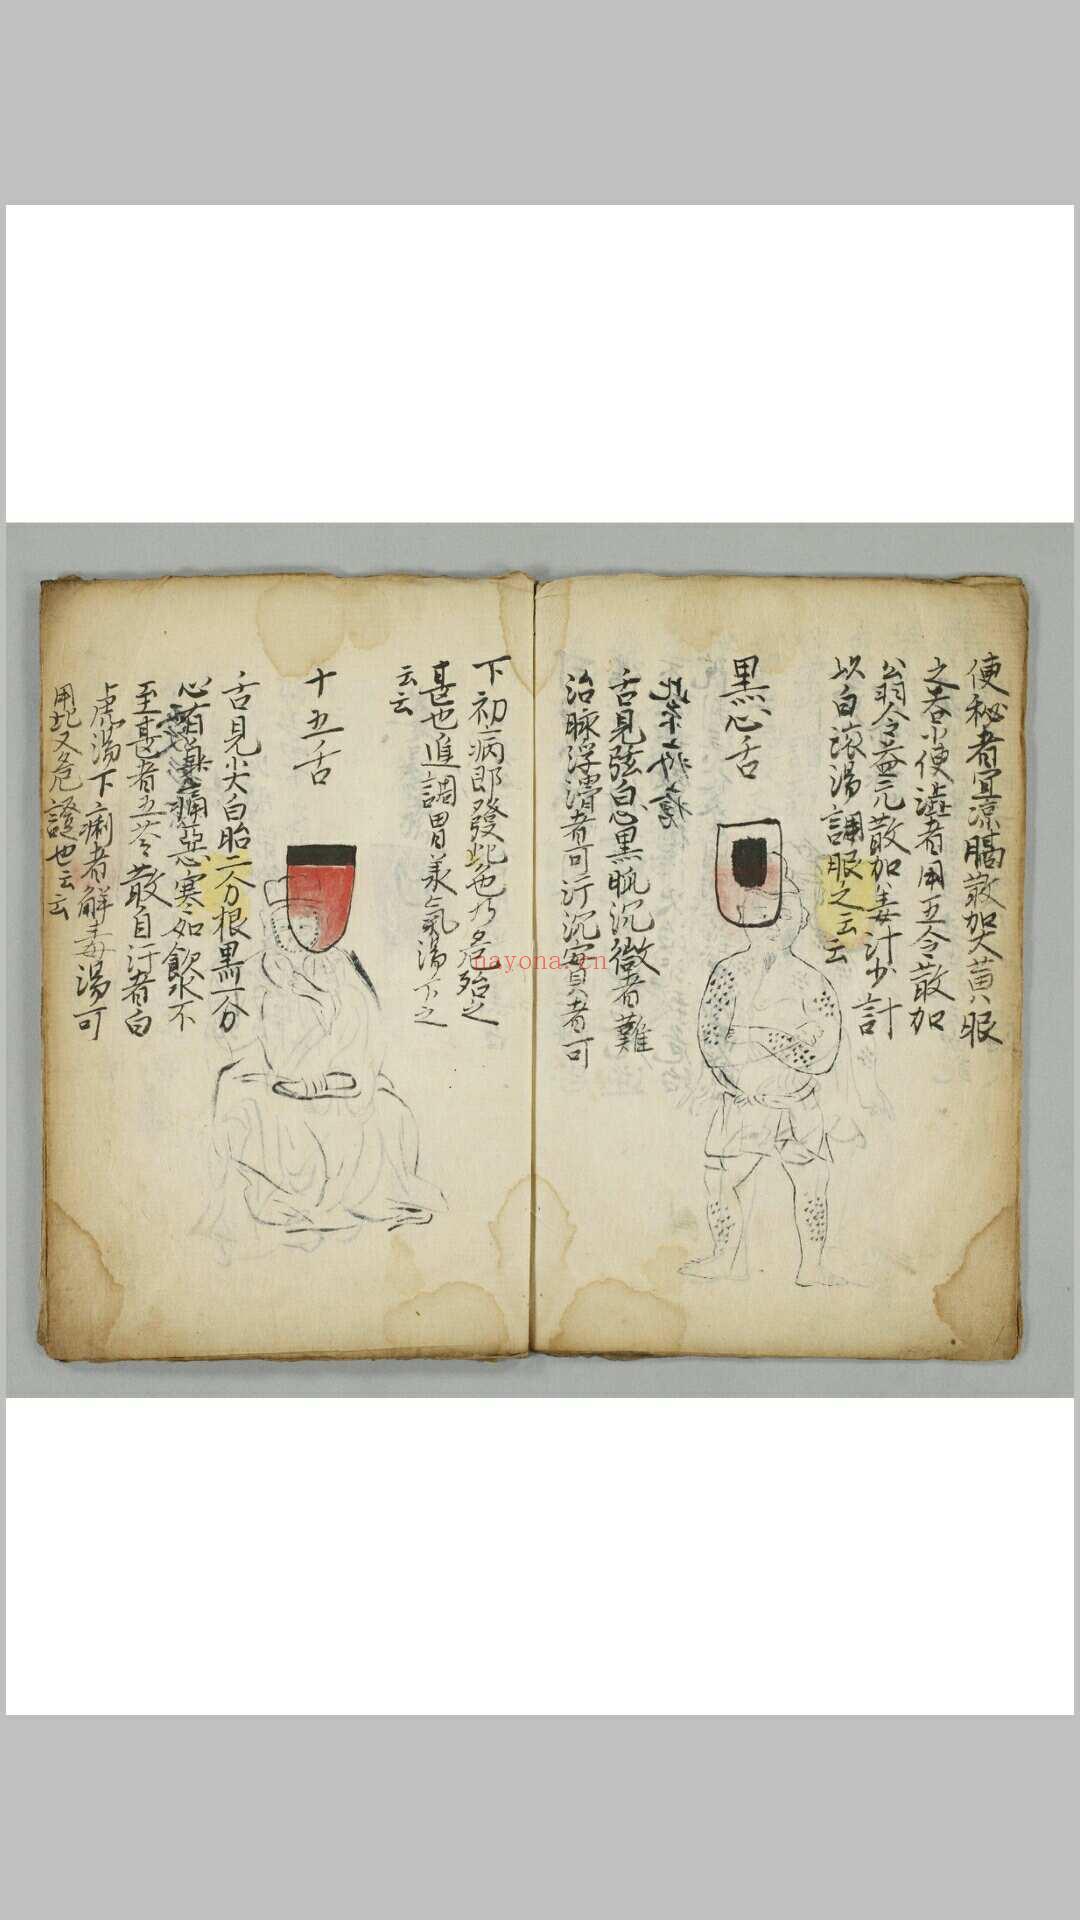 便秘者宜凉膈散加大黄服
之春小便澁者用五令散加
公羽合益元散加姜汁少計
以白滚湯調服之云云
黒心舌
舌見弦白心黒脉沉微者難
治脉浮濆者可汗沉實者可
下初病即發此色乃危殆之
甚也進調胃羕氣湯下之
云云
十五舌
舌見尖白胎二分根黒一分
心惡寒如飲水不
至甚者五苓散自汗者白
虎湯下痢者解毒湯可
用此又危證也云云
nayona.cn